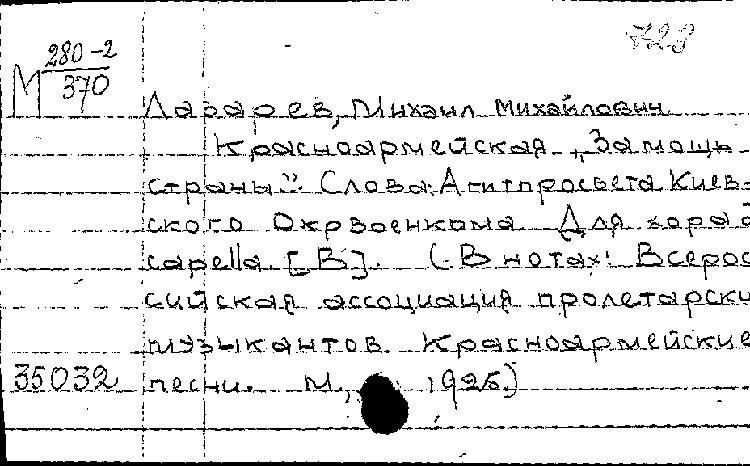 М 280-2
370
Лазарев, Михаил Михайлович.
Красноармейская. „За мощь
страны". Слова: Агитпросвета Киев-
ского Окрвоенкома. Для хора a
capella [В]. (В нотах: Всерос
сийская ассоциация пролетарски
музыкантов. Красноармейские
35032 песни. М., 1925.)